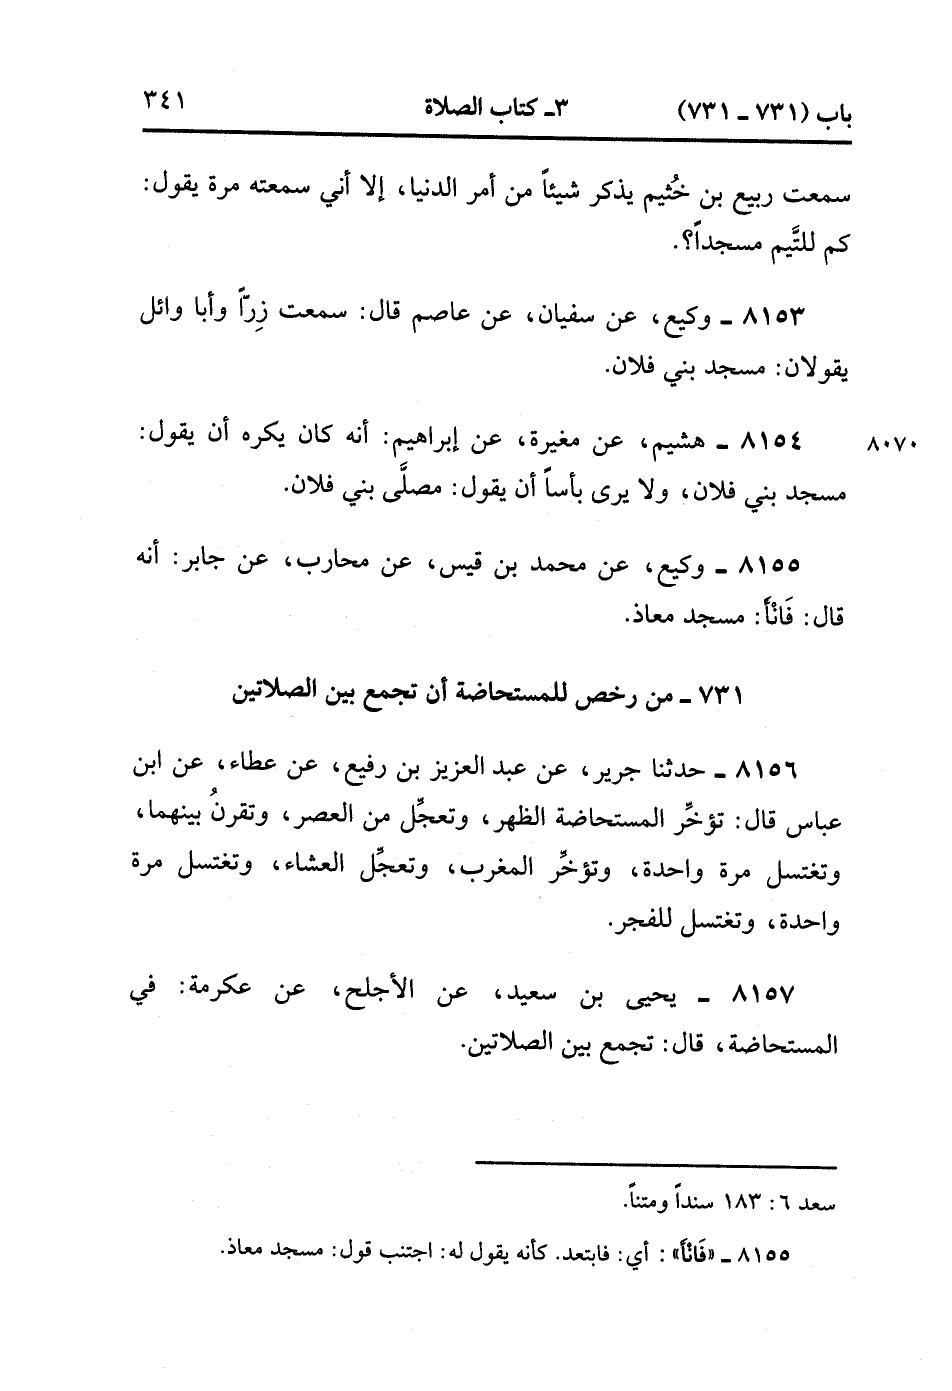 باب (٧٣١ ـ ٧٣١) ٣ـ كتاب الصلاة ٣٤١
سمعت ربيع بن خُثيم يذكر شيئاً من أمر الدنيا، إلا أني سمعته مرة يقول:
كم للتَّيم مسجداً؟.
٨١٥٣ ـ وكيع، عن سفيان، عن عاصم قال: سمعت زِرّاً وأبا وائل
يقولان: مسجد بني فلان.
٨٠٧٠ ٨١٥٤ ـ هشيم، عن مغيرة، عن إبراهيم: أنه كان يكره أن يقول:
مسجد بني فلان، ولا يرى بأساً أن يقول: مصلَّى بني فلان.
٨١٥٥ ـ وكيع، عن محمد بن قيس، عن محارب، عن جابر: أنه
قال: فَانْأَ: مسجد معاذ.
٧٣١ ـ من رخص للمستحاضة أن تجمع بين الصلاتين
٨١٥٦ ـ حدثنا جرير، عن عبد العزيز بن رفيع، عن عطاء، عن ابن
عباس قال: تؤخِّر المستحاضة الظهر، وتعجِّل من العصر، وتقرنُ بينهما،
وتغتسل مرة واحدة، وتؤخِّر المغرب، وتعجِّل العشاء، وتغتسل مرة
واحدة، وتغتسل للفجر.
٨١٥٧ ـ يحيى بن سعيد، عن الأجلح، عن عكرمة: في
المستحاضة، قال: تجمع بين الصلاتين.
سعد ٦: ١٨٣ سنداً ومتناً.
٨١٥٥ ـ «فَانْأَ»: أي: فابتعد. كأنه يقول له: اجتنب قول: مسجد معاذ.